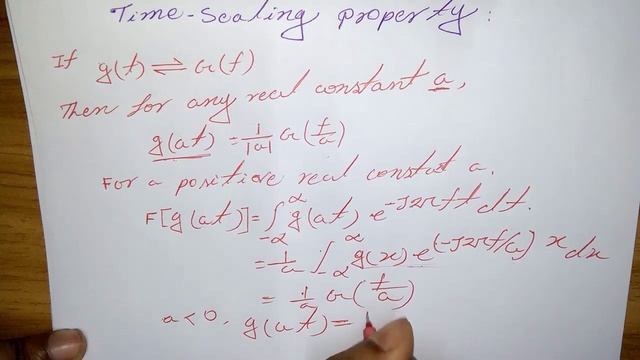 Time-Scaling property:
If g(t) ⇌ G(f)
Then for any real constant a,
g(at) = 1/|a| G(f/a)
For a positive real constat a.
F[g(at)] = ∫_{-α}^{α} g(at) · e^{-J2πft} dt.
= 1/a ∫_{-α}^{α} g(x) · e^{(-J2πf/a)x} dx
= 1/a G(f/a)
a < 0, g(at) =